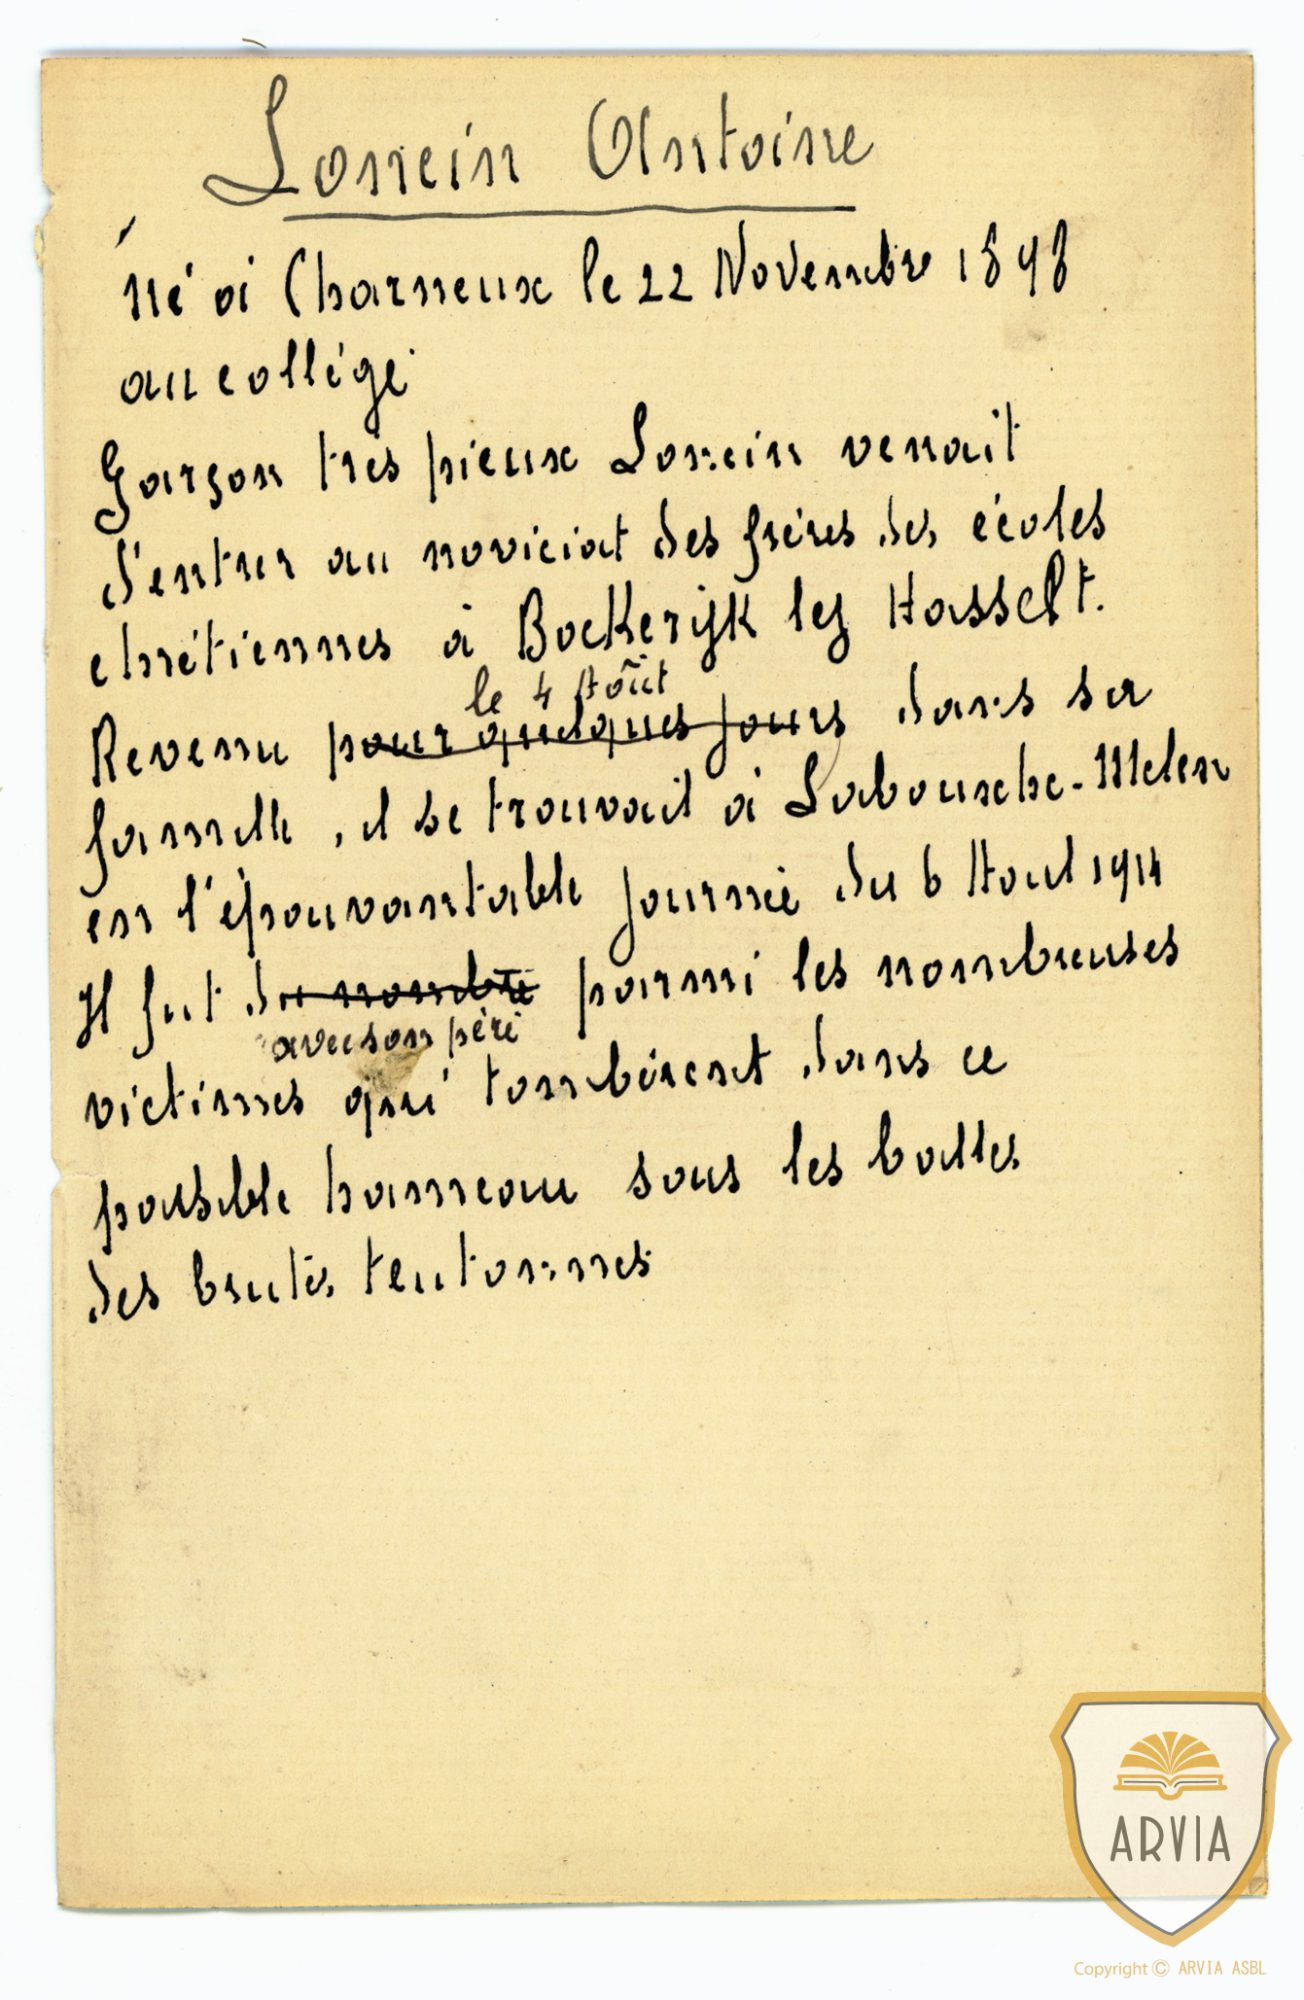 Lonnein Antoine
né à Charneux le 22 Novembre 1898
au collége
Garçon très pieux Lonnein venait
d'entrer au noviciat des frères des écoles
chrétiennes à Bockerijk lez Hasselt.
le 4 Août
Revenu pour quelques jours dans sa
famille, il se trouvait à Labouxche-Melen
en l'épouvantable journée du 6 Aout 1914
Il fut du nombre parmi les nombreuses
avec son père
victimes qui tombèrent dans ce
paisible hameau sous les balles
des brutes teutonnes
ARVIA
Copyright © ARVIA ASBL